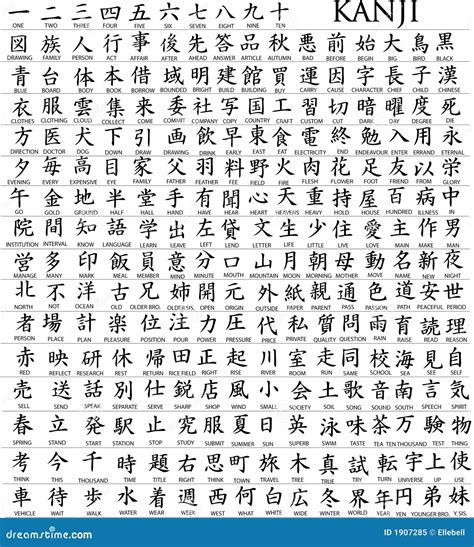 一二三四五六七八九十 KANJI
ONE TWO THREE FOUR FIVE SIX SEVEN EIGHT NINE TEN
図族人行事後先答品秋悪前始大鳥黒
DRAWING FAMILY PERSON ACT AFFAIR AFTER AHEAD ANSWER ARTICLE AUTUMN BAD BEFORE BEGIN BIG BIRD BLACK
青台体本借域明建館買運因字長子漢
BLUE BOARD BODY BOOK BORROW BOUNDED BRIGHT BUILD BUILDING BUY CARRY CAUSE CHARACTER CHIEF CHILD CHINESE
衣服雲集来委社写国工習切暗曜度死
CLOTHES CLOTHING CLOUD COLLECT COME COMMIT COMPANY COPY COUNTRY CRAFT CUSTOM CUT DARKNESS DAY DEGREE DIE
方医犬下引画飲早東食電終勉入用永
DIRECTION DOCTOR DOG DOWN DRAG DRAW DRINK EARLY EAST EAT ELECTRICITY END ENDEAVOUR ENTER ERRAND ETERNAL
夕毎高目家父料野火肉花足友以栄
EVENING EVERY EXPENSIVE EYE FAMILY FATHER FEATHER FEE FIELD FIRE FLESH FLOWER FOOT FRIEND FROM GLORY
午金地半堂手有開心天重持屋百病中
GO GOLD GROUND HALF HALL HAND HAVE HEART HEAVY HOLD HOUSE HUNDRED ILLNESS IN
院間知語学出左貸文生少住愛主作男
INSTITUTION INTERVAL KNOW LANGUAGE LEARN LEAVE LEFT LEND LETTER LIFE LITTLE LIVE LOVE MAIN MAKE MAN
営多印飯員意分口山母動名新夜
MANAGE MANY MARK MEAL MEMBER MIND MINUTE MOUTH MOUNTAIN MOON MOTHER MOVE NAME NEW NIGHT
北不洋古兄姉開元外紙親通色道安世
NORTH NOT OCEAN OLD OLDER BRO. OLDER SIS. OPEN ORIGIN OUTSIDE PAPER PARENT PASS PATH PEACEFUL PERIOD
者場計楽位注力圧代私質問雨育読理
PERSON PLACE PLAN PLEASURE POSITION POUR POWER PRESSURE PRICE PRIVATE QUESTION RAIN RAISE READ REASON
赤映研休帰田正起川室走同校海見自
RED REFLECT RESEARCH REST RETURN RICE FIELD RIGHT RISE RIVER ROOM RUN SAME SCHOOL SEA SEE SELF
売送話別仕鋭店風小会土歌音南言気
SELL SEND SPEAK SEPARATE SERVE SHARP SHOP WIND SMALL SOCIETY SOIL SONG SOUND SOUTH SPEECH SPIRIT
春立発駅止究服夏日英泳味茶万験物
SPRING STAND START STATION STOP STUDY SUBMIT SUMMER SUN SUPERB SWIM TASTE TEA TEN THOUSAND TEST THING
考今千時題右思町旅木真試転宇上使
THINK THIS THOUSAND TIME TITLE RIGHT THINK TOWN TRAVEL TREE TRUE TRY TURN UNIVERSE UP USE
車待歩水週西何白冬世界年円弟妹
VEHICLE WAIT WALK WATER WEEK WEST WHAT WHITE WINTER WORLD YEAR YEN
dreamstime.com
ID 1907285 © Ellebell